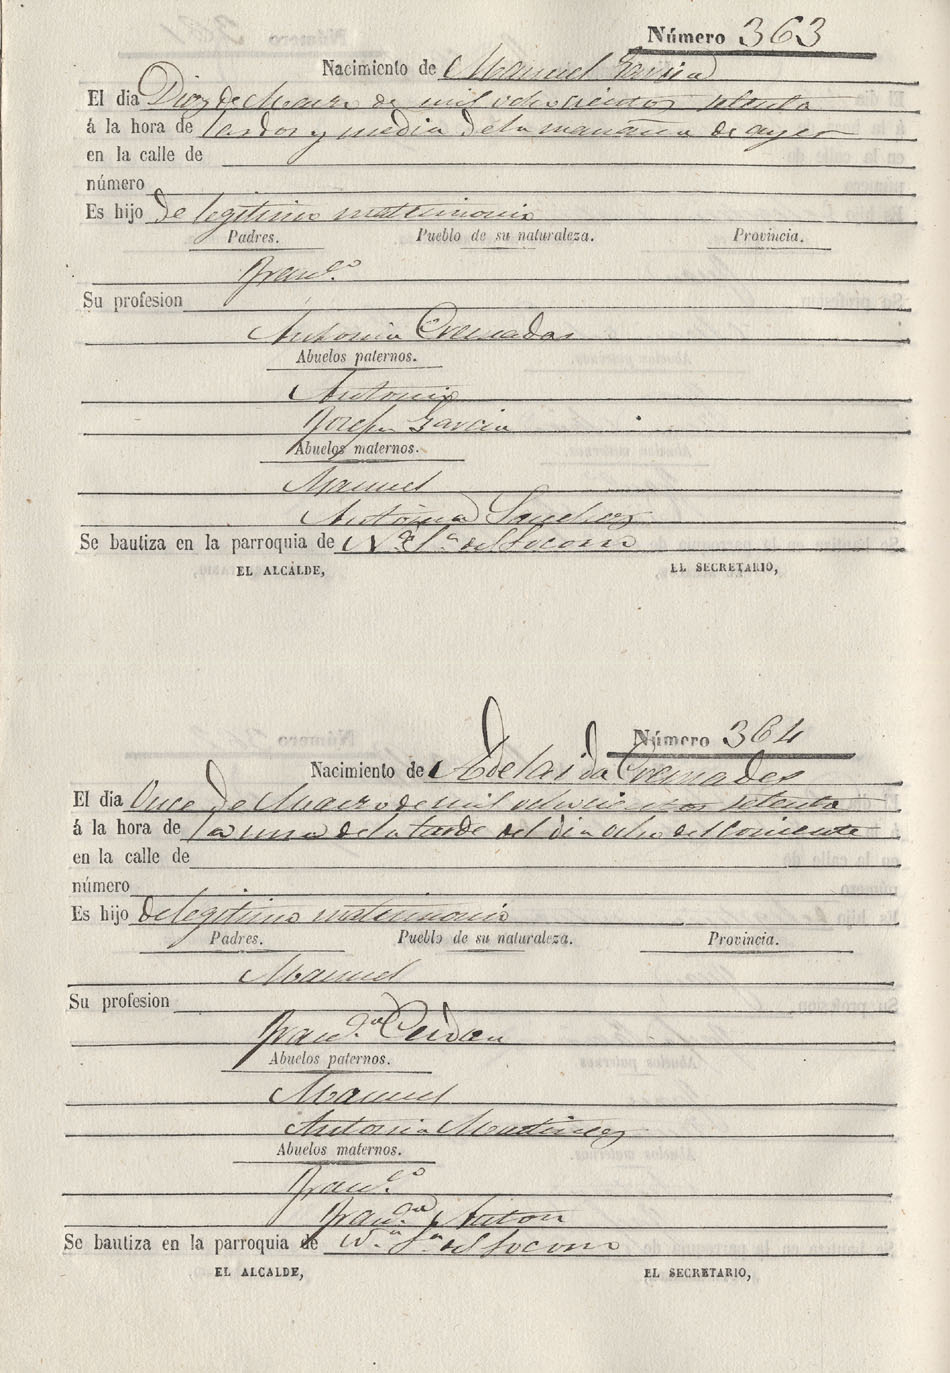 Número 363
Nacimiento de Manuel Garcia
El dia Diez de Marzo de mil ochocientos setenta
á la hora de las dos y media de la mañana de ayer
en la calle de
número
Es hijo de legitimo matrimonio
Padres. Pueblo de su naturaleza. Provincia.
Fran.co
Su profesion
Antonia Cremades
Abuelos paternos.
Antonio
Josefa Garcia
Abuelos maternos.
Manuel
Antonia Sanchez
Se bautiza en la parroquia de N.a S.a del Socorro
EL ALCALDE, EL SECRETARIO,
Número 364
Nacimiento de Adelaida Cremades
El dia Once de Marzo de mil ochocientos setenta
á la hora de la una de la tarde del dia ocho del corriente
en la calle de
número
Es hijo de legitimo matrimonio
Padres. Pueblo de su naturaleza. Provincia.
Manuel
Su profesion
Fran.ca Cerdan
Abuelos paternos.
Manuel
Antonia Martinez
Abuelos maternos.
Fran.co
Fran.ca Anton
Se bautiza en la parroquia de N.a S.a del Socorro
EL ALCALDE, EL SECRETARIO,